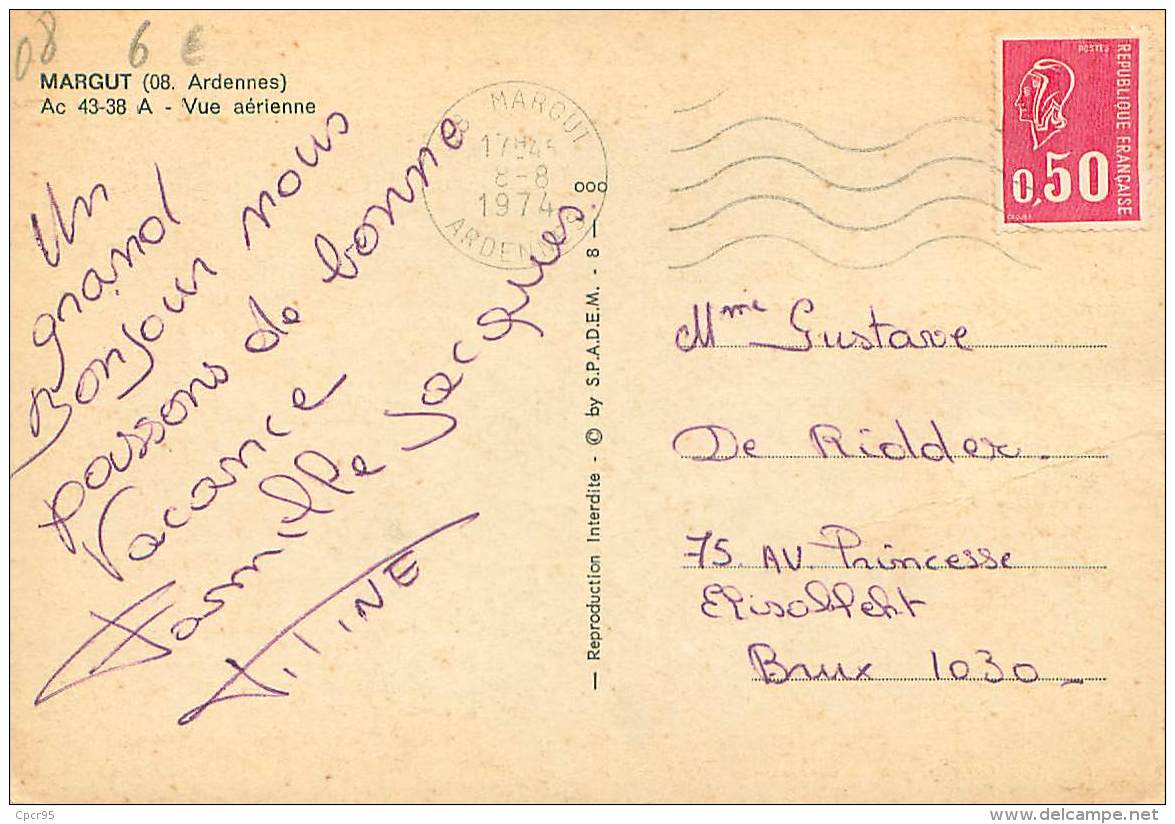 08 6 €
MARGUT (08. Ardennes)
Ac 43-38 A - Vue aérienne
Un
grand
Bonjour nous
passons de bonne
Vacance
Famille Jacques.
TINE
08 MARGUT
17H45
8-8
1974
ARDENNES
000
— Reproduction Interdite - © by S.P.A.D.E.M. - 8 —
POSTES
REPUBLIQUE FRANÇAISE
0,50
Mme Gustave
De Ridder.
75. AV. Princesse
Elisabheht
Brux 1030_
Cpcr95
delcampe.net